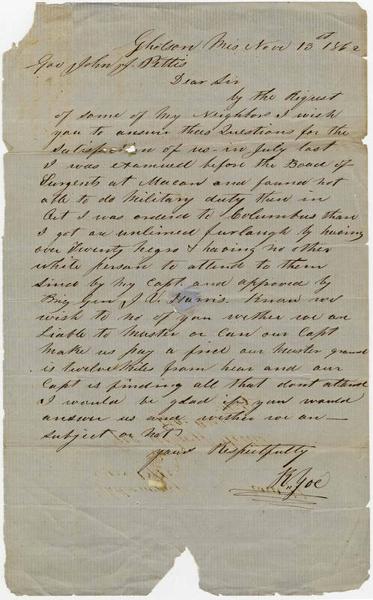 Gholson Mis Nov 13th 1862
Gov John J. Pettis
Dear Sir
by the Riquest
of some of My Neighbors I wish
you to answer thes Questions for the
Satisfaction of us - in July last
I was examined before the Boad of
Surgents at Macon and found not
able to do Military duty then in
Oct I was ordered to Columbus than
I got an unlimed furlough by having
over Twenty Negro & having no other
white person to attend to them
Sined by my Capt and approved by
Brig Gen J. V. Harris. Know we
wish to no of you wether we are
liable to Muster or can our Capt
Make us pay a find our Muster ground
is twelve Miles from hear and our
Capt is finding all that dont attend
I would be glad if you would
answer us and wether we are
Subject or Not
Yours Respectfully
K. Yoe